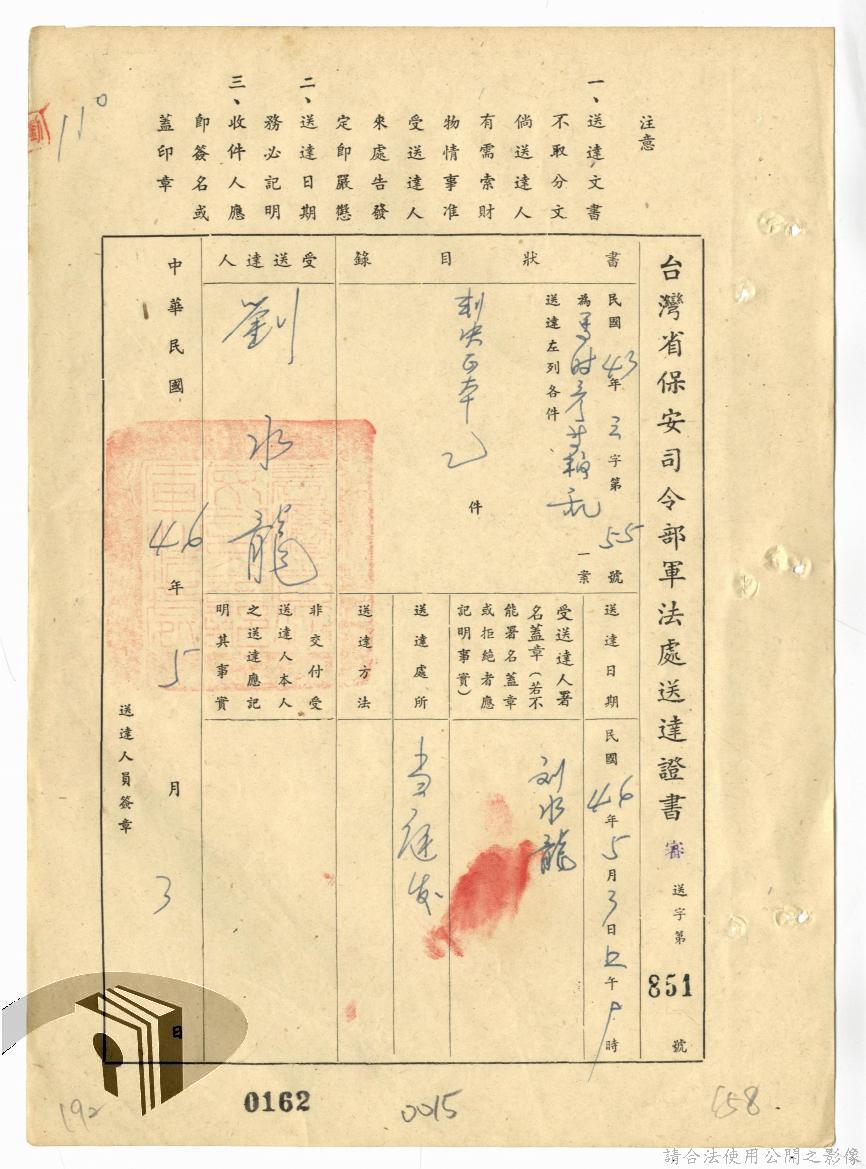 注意
一、送達文書
不取分文
倘送達人
有需索財
物情事准
受送達人
來處告發
定即嚴懲
二、送達日期
務必記明
三、收件人應
即簽名或
蓋印章
110
台灣省保安司令部軍法處送達證書 審 送字第 851 號
書狀目錄
民國43年 字第55號
為馬時彥等叛亂一案
送達左列各件
判決正本乙件
受送達人
劉水龍
送達日期
民國46年5月3日上午 時
受送達人署
名蓋章（若不
能署名蓋章
或拒絕者應
記明事實）
刘水龍
送達處所
當庭发
送達方法
非交付受
送達人本人
之送達應記
明其事實
中華民國46年5月3日
送達人員簽章
192
0162
0015
158
請合法使用公開之影像